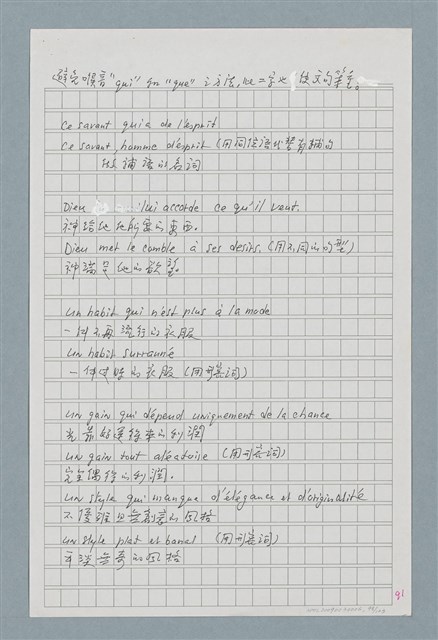 避免嗓音"qui" ou "que"之方法,此二字也使文句笨重。
Ce savant qui a de l'esprit
Ce savant, homme d'esprit (用同位語代替有輔的
補語的名詞
Dieu lui accorde ce qu'il veut.
神給他他所要的東西。
Dieu met le comble à ses désirs. (用不同的句型)
神滿足他的欲望。
Un habit qui n'est plus à la mode
一件不再流行的衣服
Un habit suranné
一件過時的衣服 (用形容詞)
Un gain qui dépend uniquement de la chance
光靠好運得來的利潤
Un gain tout aléatoire (用形容詞)
完全偶然的利潤.
Un style qui manque d'élégance et d'originalité
不優雅且無創意的風格
Un style plat et banal (用形容詞)
平淡無奇的風格
91